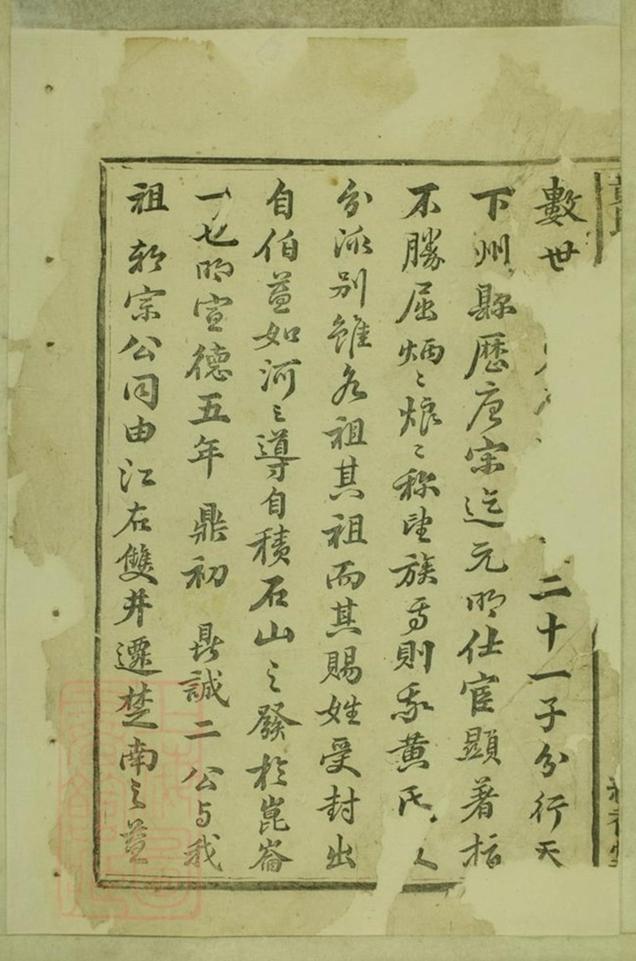 數世二十一子分行天
下州縣歷唐宋迄元明仕宦顯著指
不勝屈炳〻烺〻称望族焉則我黄氏
分派别雖各祖其祖而其賜姓受封出
自伯益如河之導自積石山之發於崑崙
一也明宣德五年鼎初 昇誠二公与我
祖朝宗公同由江右雙井遷楚南之益